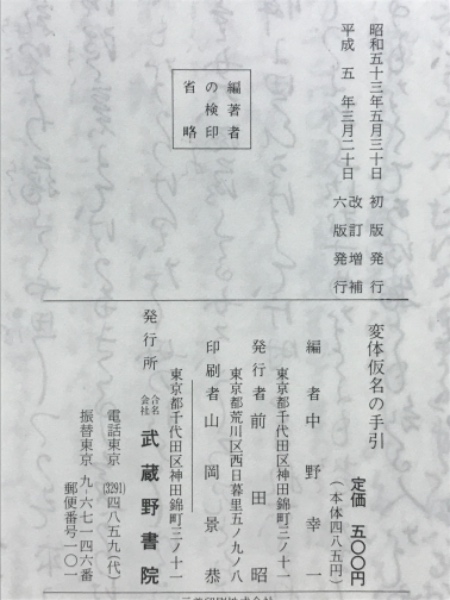 昭和五十三年五月三十日 初版発行
平成五年三月二十日 改訂増補六版発行
編著者
の検印
省略
変体仮名の手引
定価 五〇〇円
(本体四八五円)
編者 中野幸一
東京都千代田区神田錦町三ノ十一
発行者 前田昭
東京都荒川区西日暮里五ノ九ノ八
印刷者 山岡景恭
東京都千代田区神田錦町三ノ十一
発行所 合名会社 武蔵野書院
電話東京 (3291) 四八五九(代)
振替東京 九-六七一四六番
郵便番号一〇一